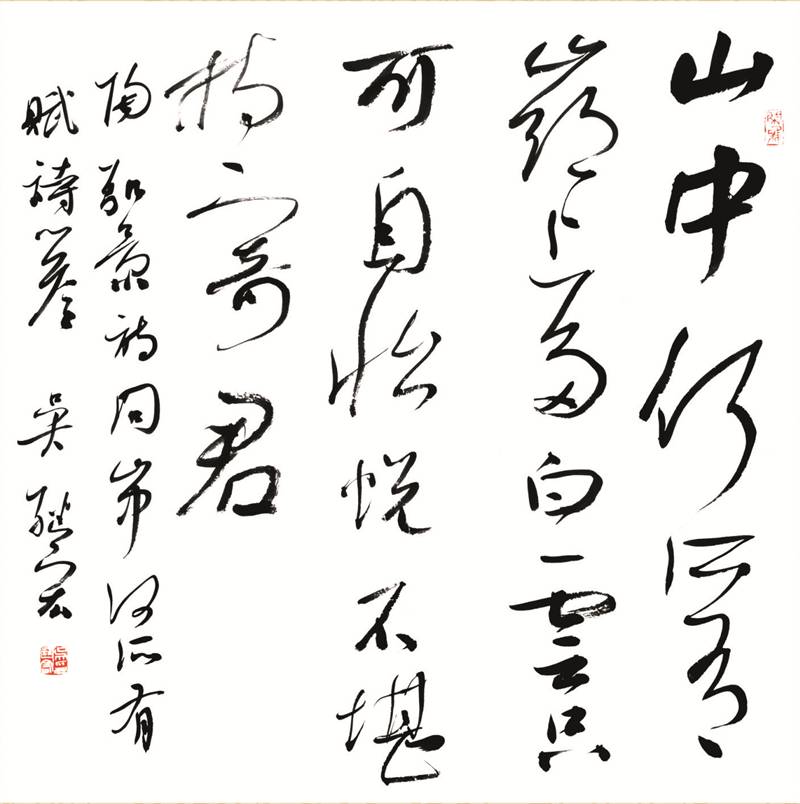 山中何所有
嶺上多白雲只
可自怡悦不堪
持寄君
陶弘景詔問山中何所有
賦詩以答 吴繼宏